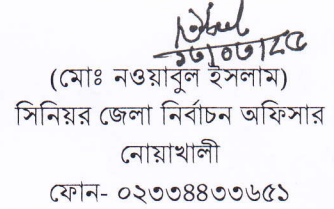 (মোঃ নওয়াবুল ইসলাম)
সিনিয়র জেলা নির্বাচন অফিসার
নোয়াখালী
ফোন- ০২৩৩৪৪৩৩৬৫১